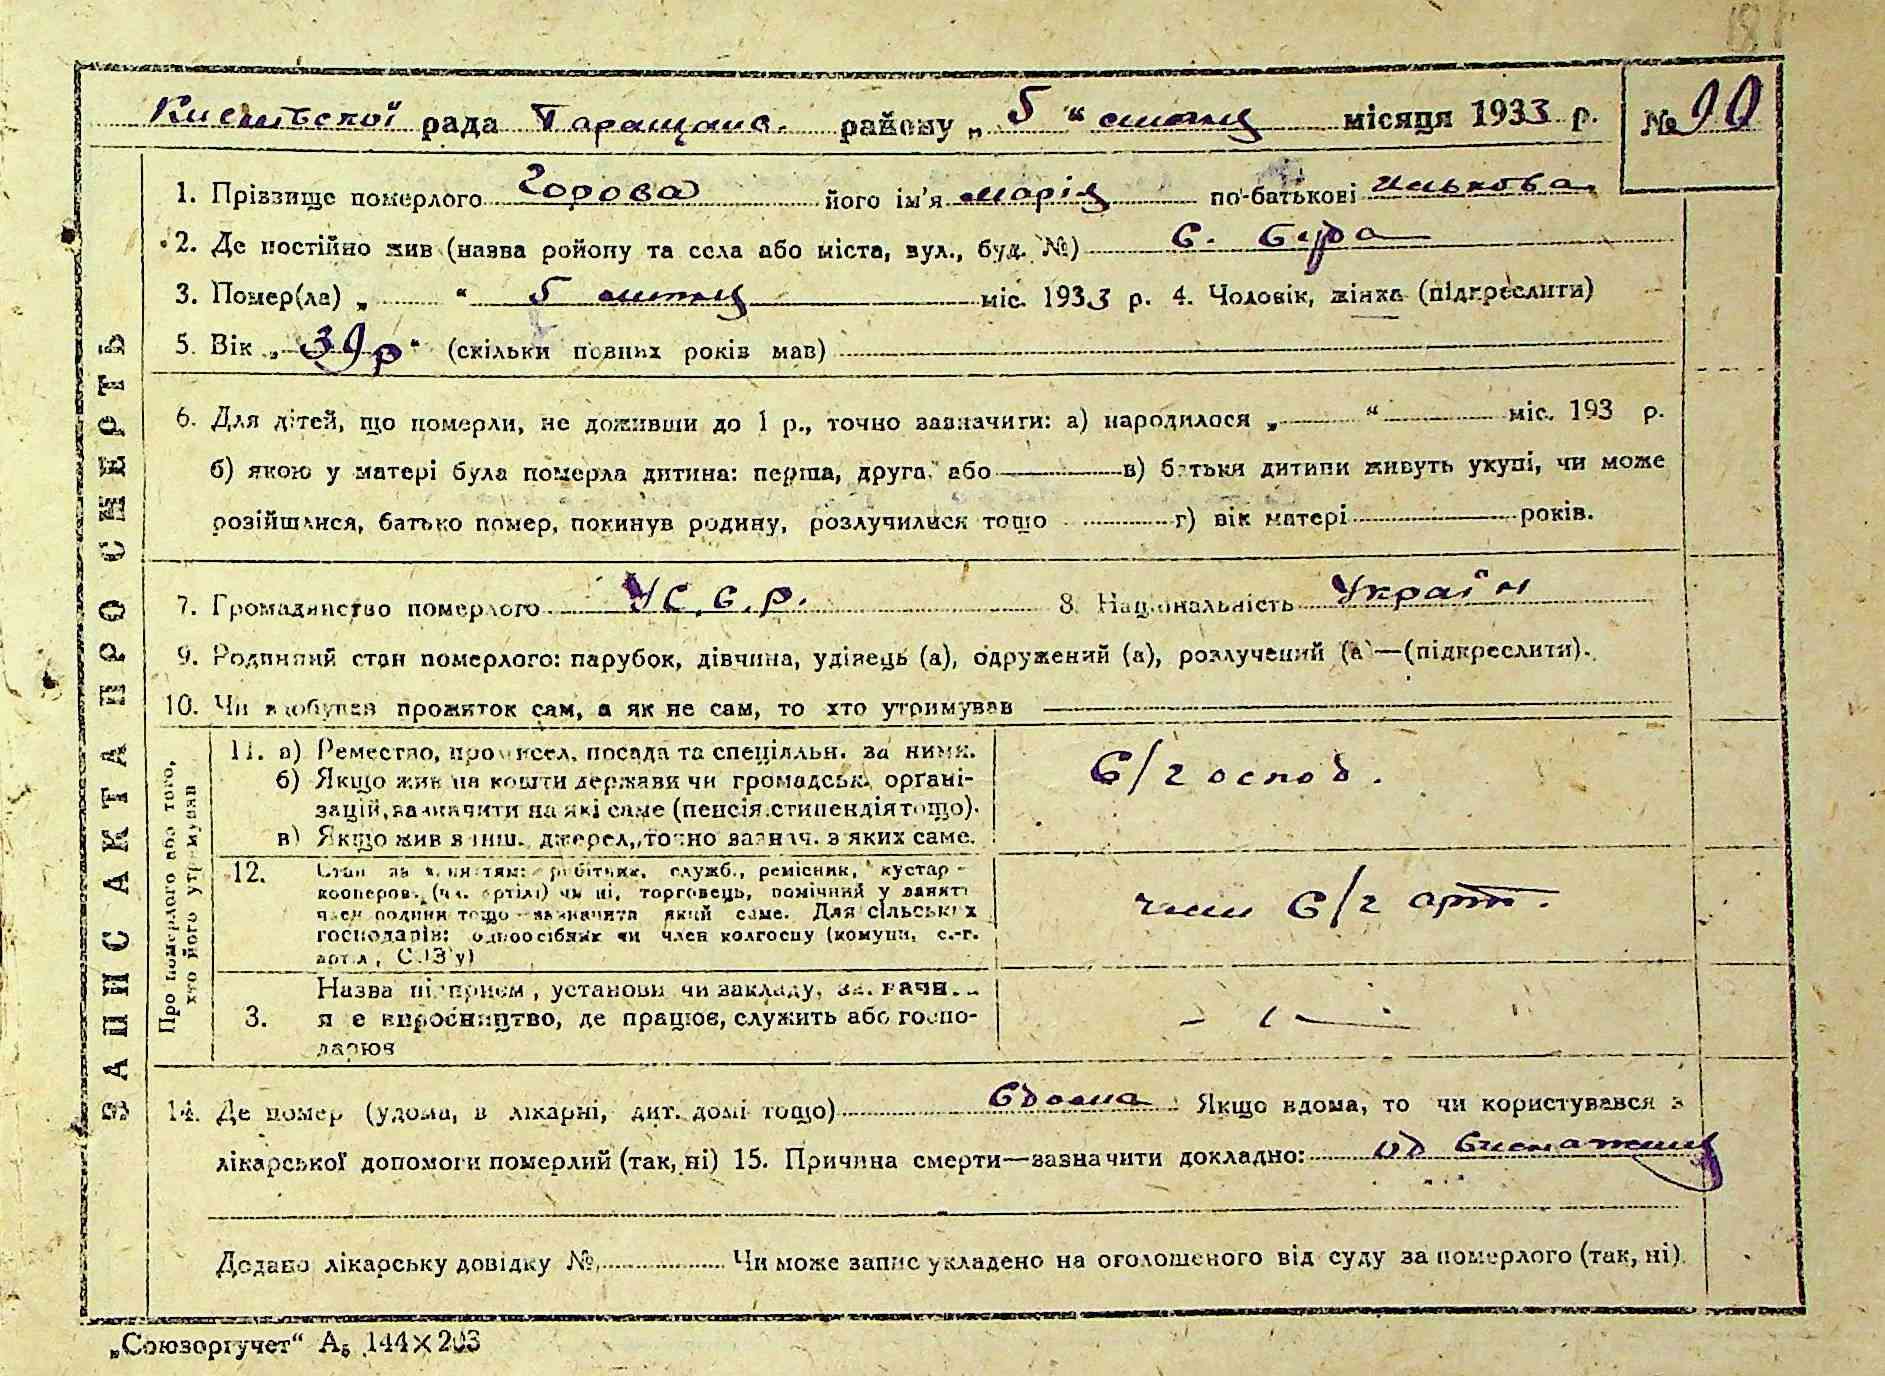 рада Таращанс. району „ 5 “ лютня місяця 1933 р. № 90
1. Прізвище померлого Горова його ім'я Марія по-батькові Илькова
2. Де постійно жив (назва ройону та села або міста, вул., буд. №) с.
3. Помер(ла) „ “ 5 лютня міс. 1933 р. 4. Чоловік, жінка (підкреслити)
5. Вік „ 39 р “ (скільки повних років мав)
6. Для дітей, що померли, не доживши до 1 р., точно зазначити: а) народилося „ “ міс. 193 р.
б) якою у матері була померла дитина: перша, друга, або в) батьки дитини живуть укупі, чи може
розійшлися, батько помер, покинув родину, розлучилися тощо г) вік матері років.
7. Громадянство померлого УС.С.Р. 8. Національність Україн
9. Родинний стан померлого: парубок, дівчина, удівець (а), одружений (а), розлучений (а)—(підкреслити).
10. Чи здобував прожиток сам, а як не сам, то хто утримував
ЗАПИС АКТА ПРО СМЕРТЬ
Про померлого або того,
хто його утримував
11. а) Ремество, промисел, посада та спеціяльн. за ними.
б) Якщо жив на кошти держави чи громадськ. органі-
зацій, зазначити на які саме (пенсія, стипендія тощо).
в) Якщо жив з інш. джерел, точно зазнач. з яких саме.
С/господ.
12. Стан за заняттям: робітник, служб., ремісник, кустар -
кооперов. (чл. артілі) чи ні, торговець, помічний у занятт
член родини тощо - зазначити який саме. Для сільських
господарів: одноосібник чи член колгоспу (комуни, с.-г.
артіл, СОЗ'у)
член С/г арт.
Назва підприєм, установи чи закладу,
3. я е виробництво, де працює, служить або госпо-
дарює
14. Де помер (удома, в лікарні, дит. домі тощо) вдома Якщо вдома, то чи користувався з
лікарської допомоги померлий (так, ні) 15. Причина смерти—зазначити докладно: од виснаження
Додано лікарську довідку № Чи може запис укладено на оголошеного від суду за померлого (так, ні).
„Союзоргучет“ А₅ 144×203